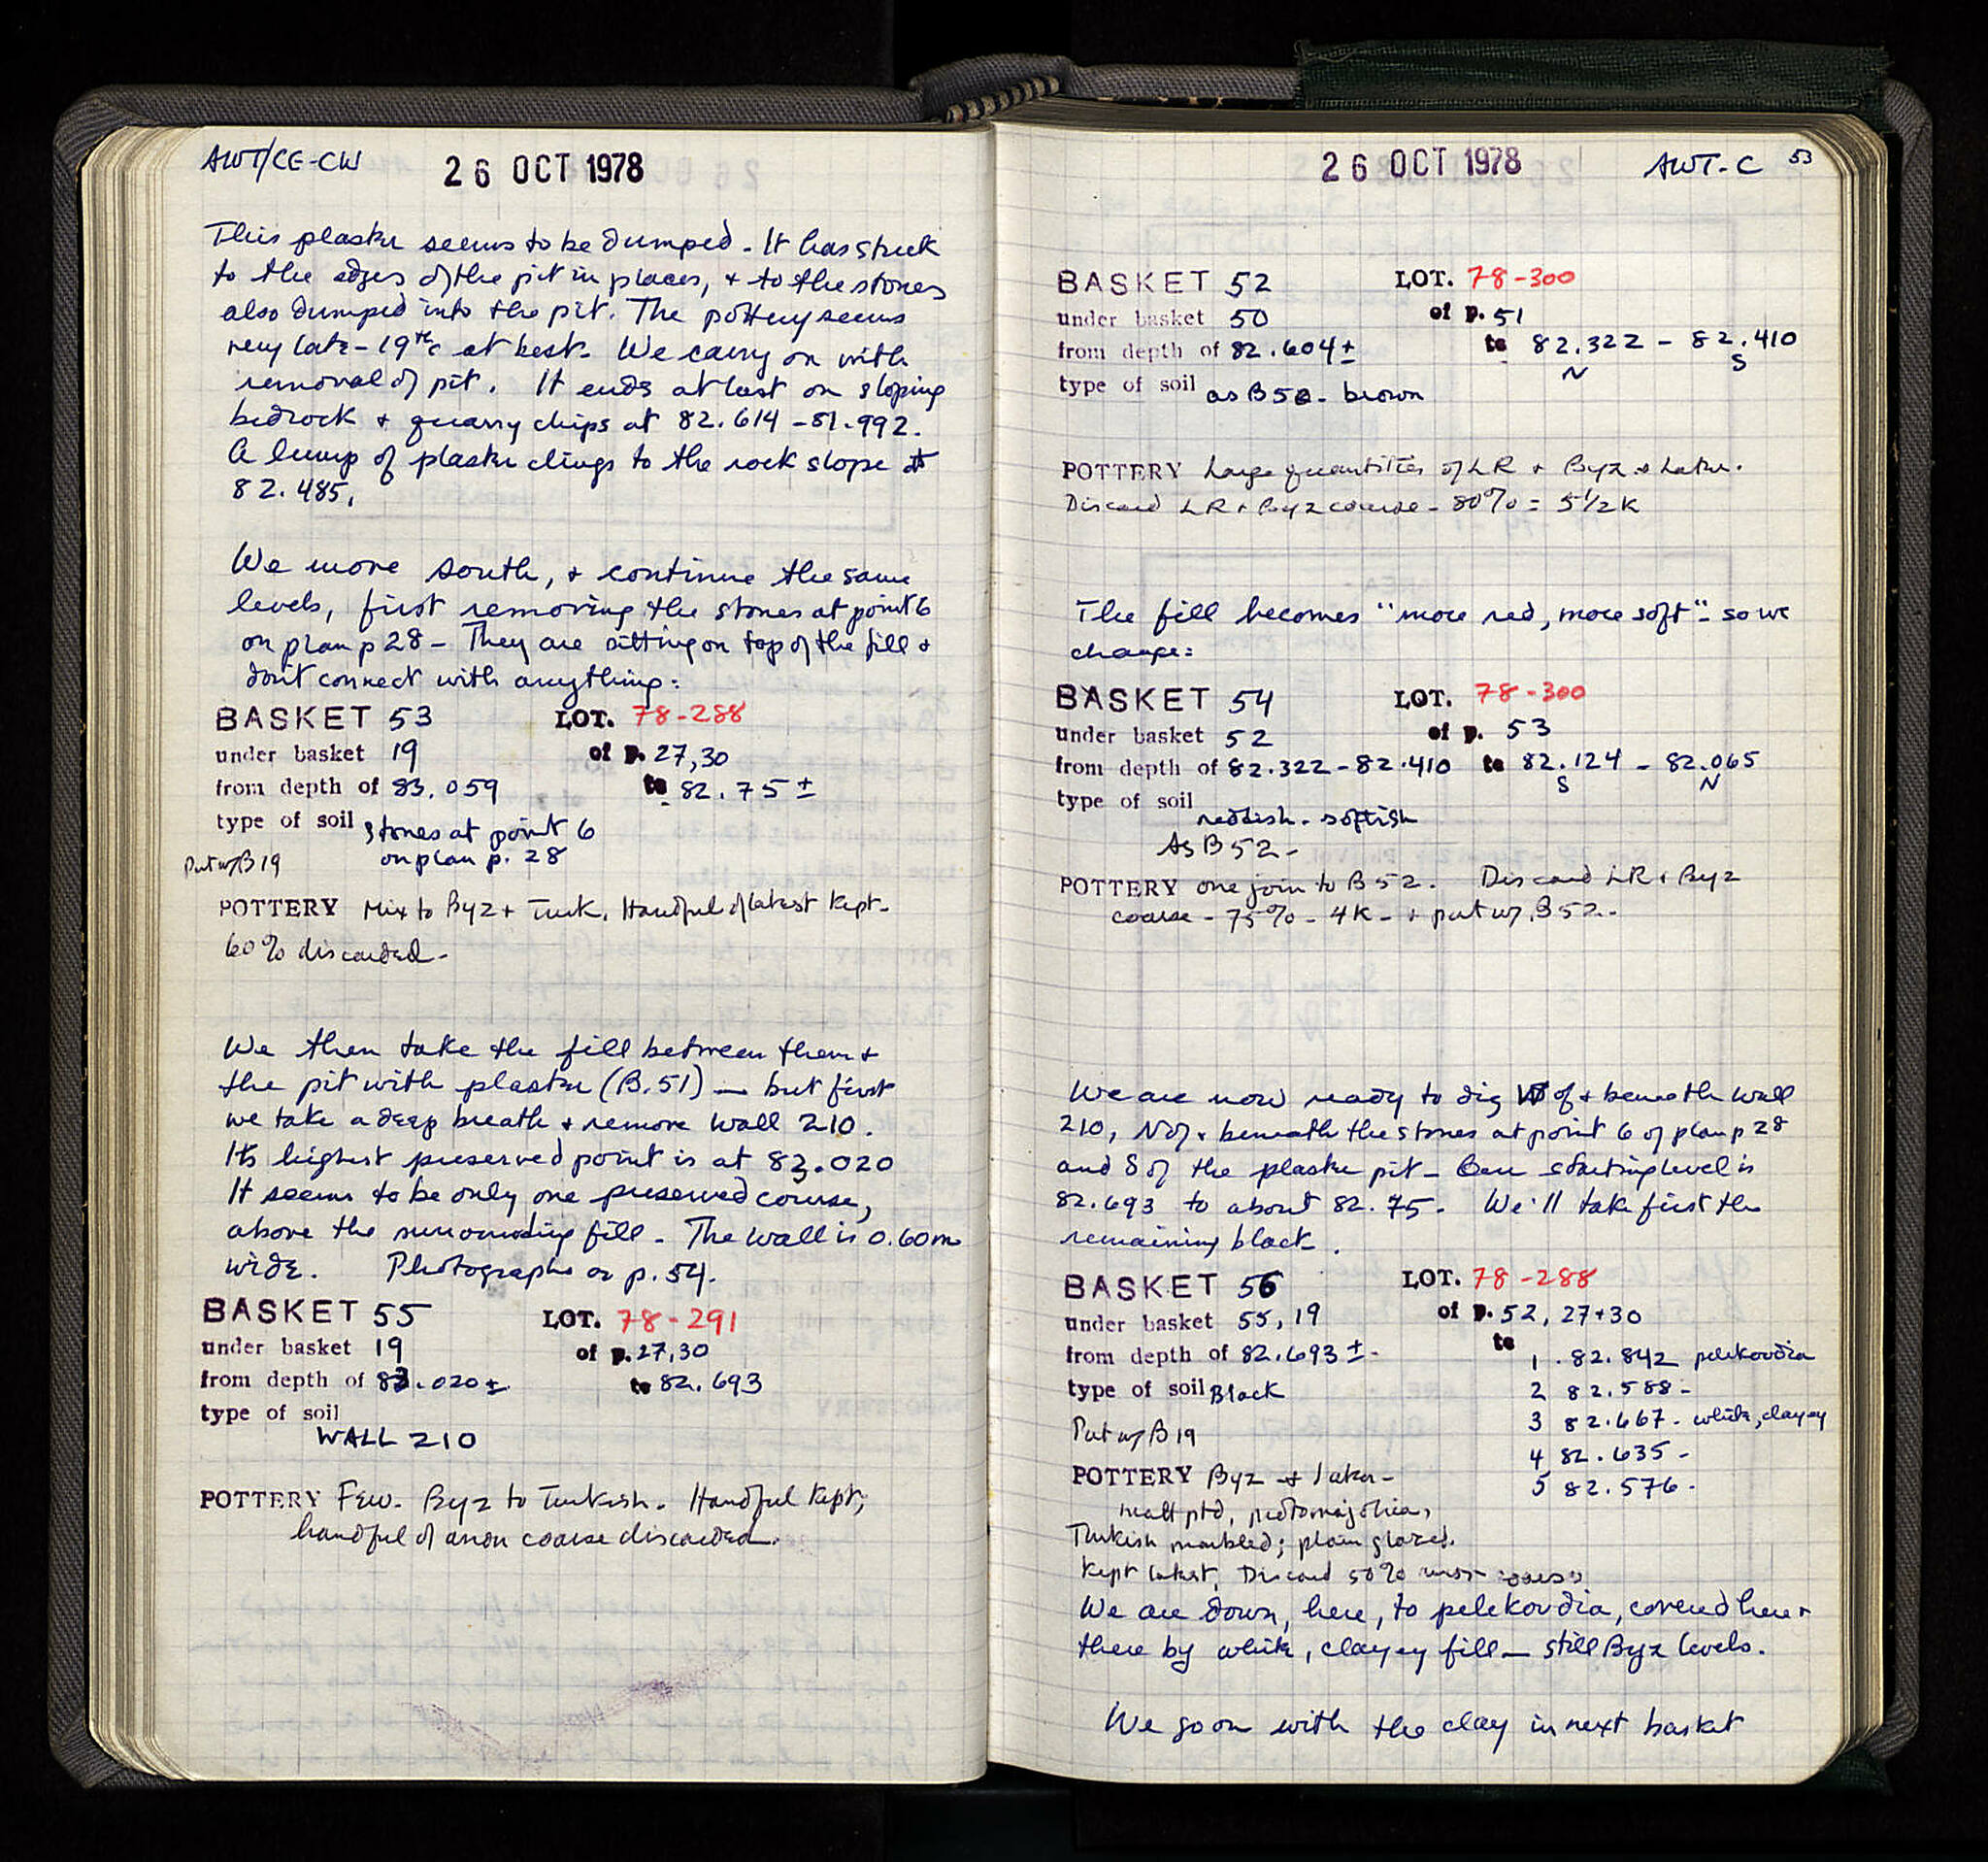 AWT/CE-CW
26 OCT 1978
This plaster seems to be dumped - It has stuck
to the edges of the pit in places, + to the stones
also dumped into the pit. The pottery seems
very late - 19th c at best. We carry on with
removal of pit. It ends at last on sloping
bedrock + quarry chips at 82.614 - 81.992.
A lump of plaster clings to the rock slope at
82.485.
We move south, + continue the same
levels, first removing the stones at point 6
on plan p 28 - They are sitting on top of the fill +
don't connect with anything:
BASKET 53 LOT. 78-288
under basket 19 of p. 27,30
from depth of 83.059 to 82.75 ±
type of soil stones at point 6
on plan p. 28
Put w/ B19
POTTERY Mix to Byz + Turk. Handful of latest kept-
60% discarded-
We then take the fill between them +
the pit with plaster (B.51) - but first
we take a deep breath + remove wall 210.
Its highest preserved point is at 83.020
It seems to be only one preserved course,
above the surrounding fill - The wall is 0.60m
wide. Photographs on p. 54.
BASKET 55 LOT. 78-291
under basket 19 of p. 27,30
from depth of 83.020± to 82.693
type of soil
WALL 210
POTTERY Few. Byz to Turkish. Handful kept;
handful of anon coarse discarded.
26 OCT 1978
AWT-C 53
BASKET 52 LOT. 78-300
under basket 50 of p. 51
from depth of 82.604± to 82.322 - 82.410
N S
type of soil as B50 - brown
POTTERY Large quantities of LR + Byz + Later.
Discard LR + Byz coarse - 80% = 5 1/2 K
The fill becomes "more red, more soft" - so we
change:
BASKET 54 LOT. 78-300
under basket 52 of p. 53
from depth of 82.322 - 82.410 to 82.124 - 82.065
S N
type of soil
reddish - softish
As B52-
POTTERY one join to B52. Discard LR + Byz
coarse - 75% - 4K - + put w/ B52-
We are now ready to dig W of + beneath wall
210, N of + beneath the stones at point 6 of plan p 28
and S of the plaster pit - Our starting level is
82.693 to about 82.75. We'll take first the
remaining black.
BASKET 56 LOT. 78-288
under basket 55, 19 of p. 52, 27+30
from depth of 82.693 ±- to 1 .82.842 pelekoudia
type of soil Black 2 82.588-
3 82.667- white, clayey
Put w/ B19
4 82.635-
POTTERY Byz + later- 5 82.576-
matt ptd, protomajolica,
Turkish marbled; plain glazed.
Kept latest, Discard 50%
We are down, here, to pelekoudia, covered here +
there by white, clayey fill - still Byz levels.
We go on with the clay in next basket